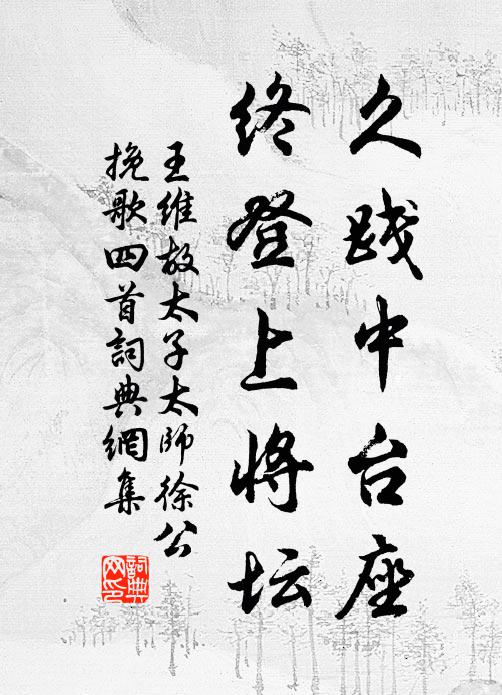 久践中台座
终登上将坛
王维故太子太师徐公
挽歌四首詞典網集
詞典网印